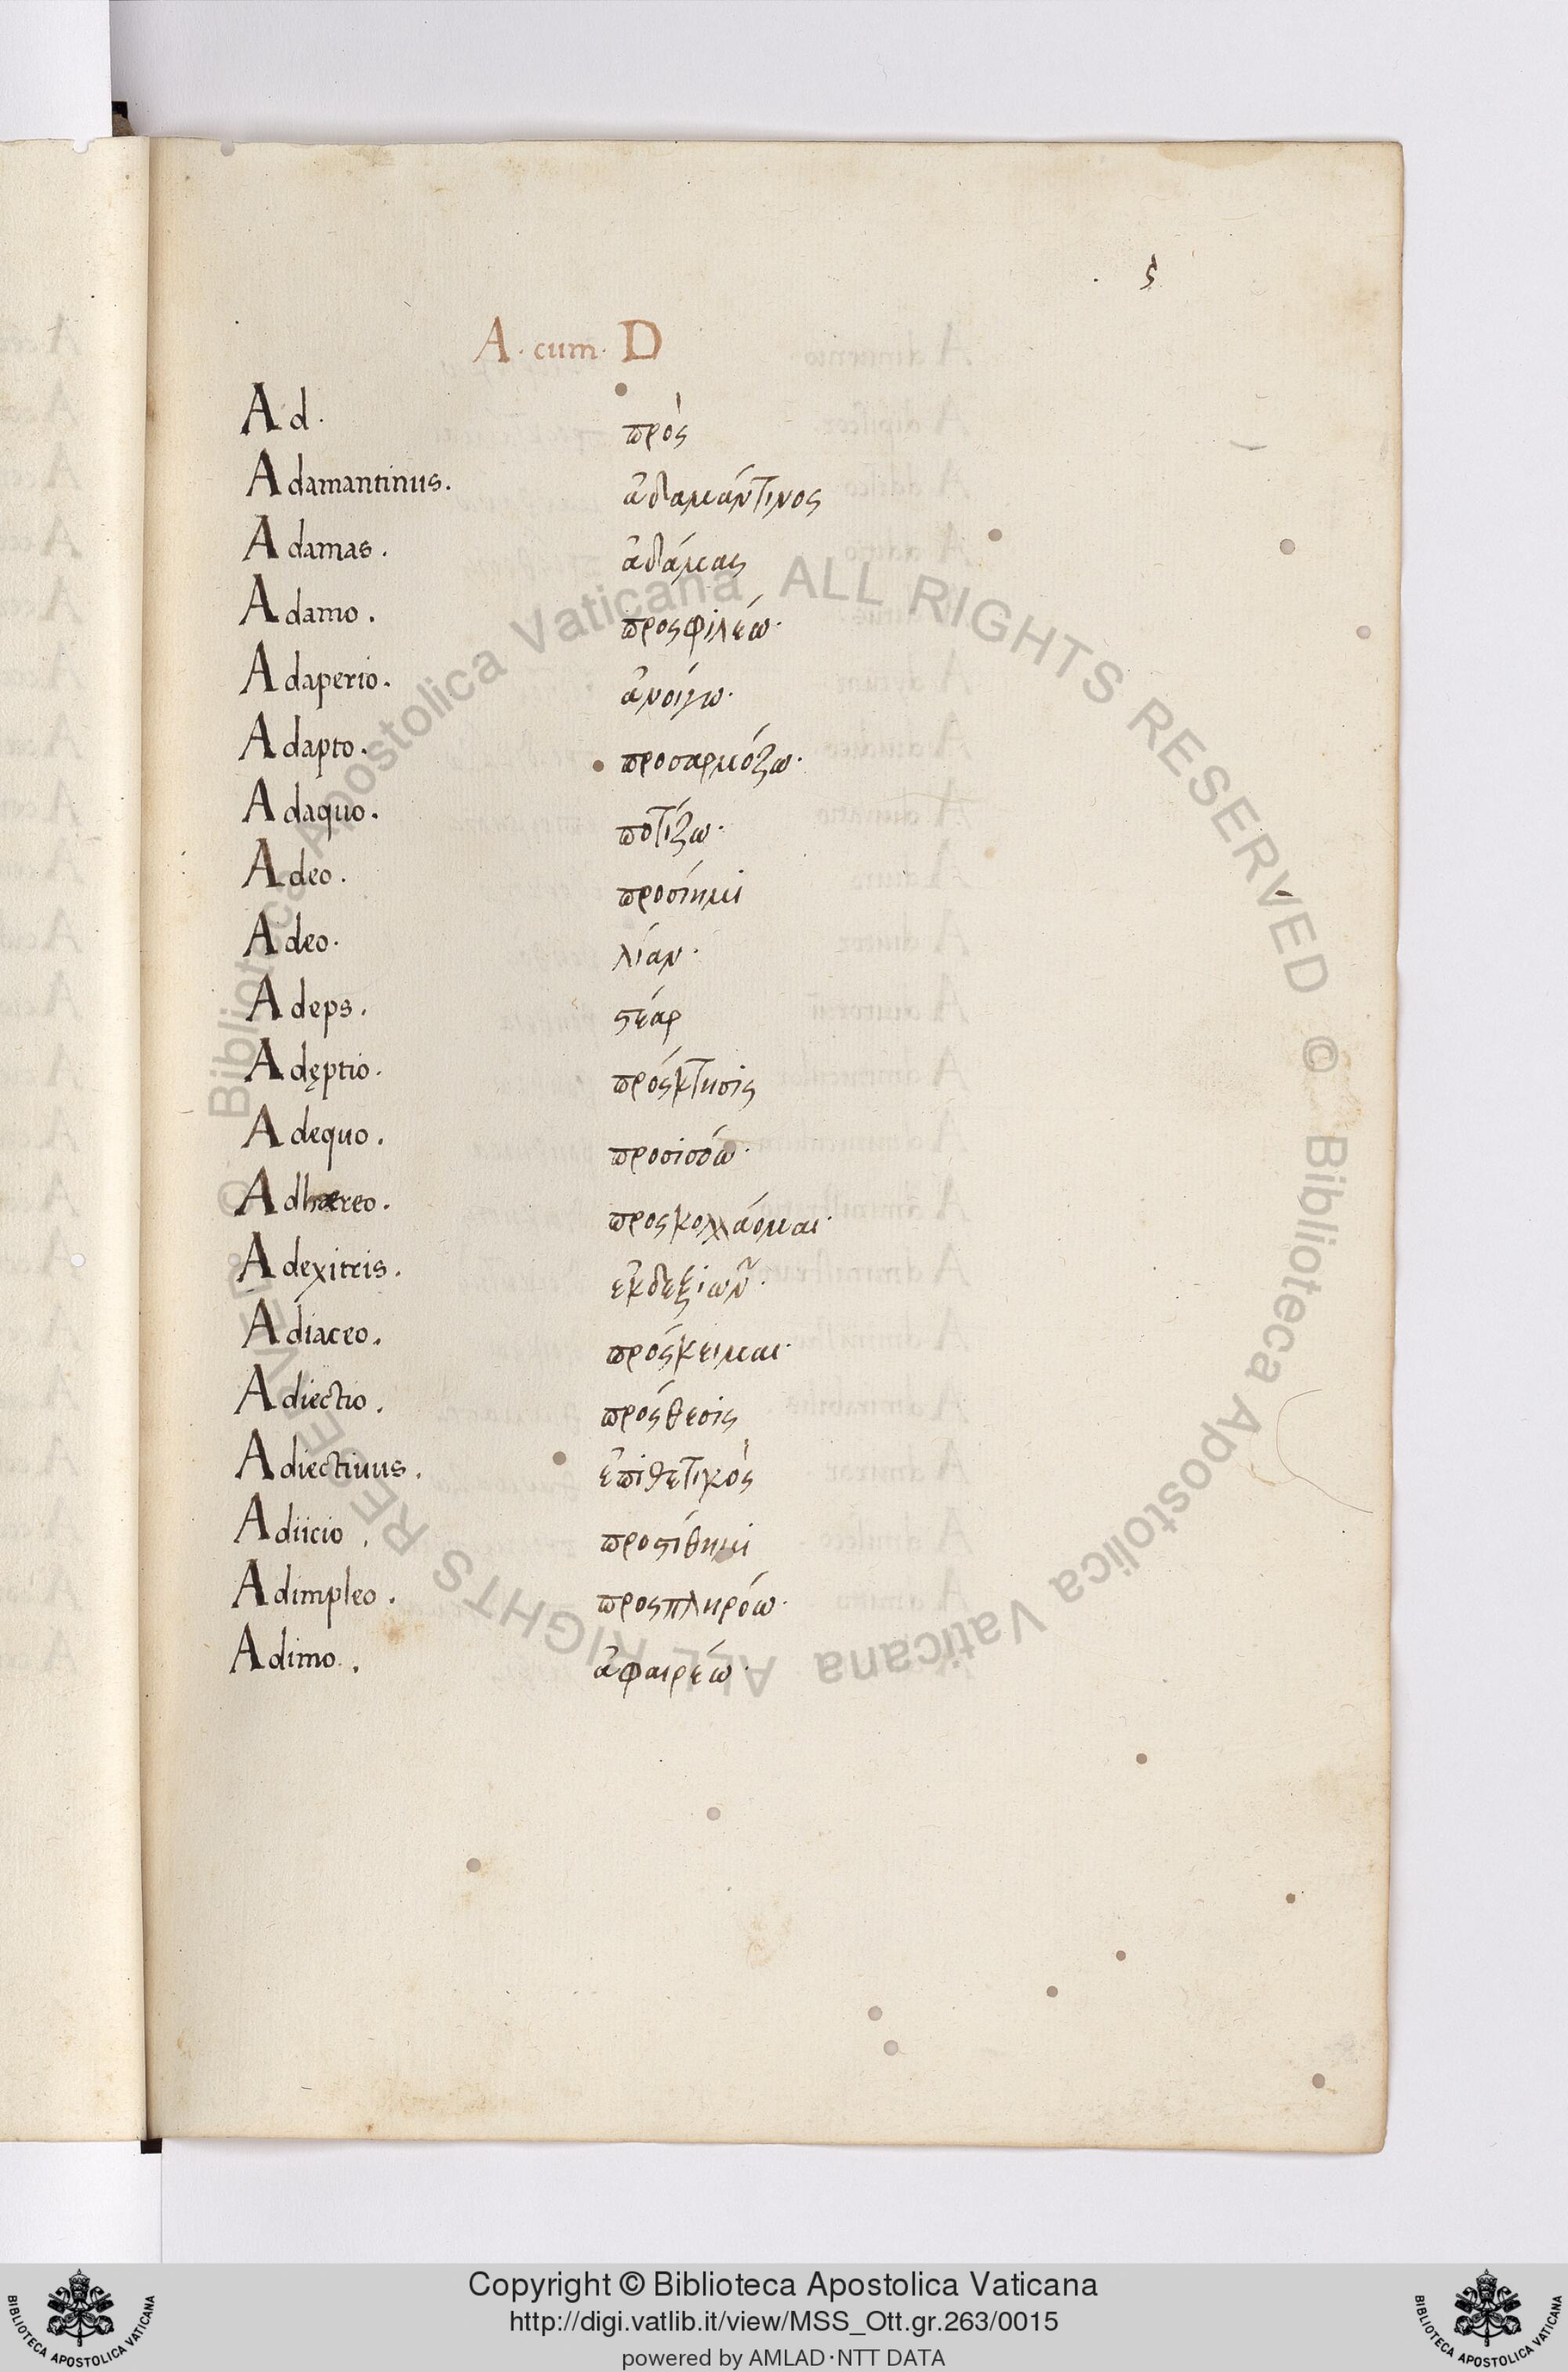 5
A · cum · D
Ad · πρὸς
Adamantinus . ἀδαμάντινος
Adamas . ἀδάμας
Adamo . προςφιλέω ·
Adaperio . ἀνοίγω ·
Adapto . προσαρμόζω ·
Adaquo . ποτίζω ·
Adeo . προσίημι
Adeo · λίαν ·
Adeps . ϛέαρ
Adęptio · πρόςκτησις
Adequo . προσισόω ·
Adhæreo . προςκολλάομαι ·
Adexitris . ἐκδεξιων̃ ·
Adiaceo . πρόςκειμαι ·
Adiectio . πρόςθεσις
Adiectiuus . ἐπιθετικὸς
Adiicio . προϛίθημι
Adimpleo . προςπληρόω ·
Adimo . ἀφαιρέω ·
© Biblioteca Apostolica Vaticana ALL RIGHTS RESERVED © Biblioteca Apostolica Vaticana ALL RIGHTS RESERVED
Copyright © Biblioteca Apostolica Vaticana
http://digi.vatlib.it/view/MSS_Ott.gr.263/0015
powered by AMLAD·NTT DATA
BIBLIOTECA APOSTOLICA VATICANA
BIBLIOTECA APOSTOLICA VATICANA